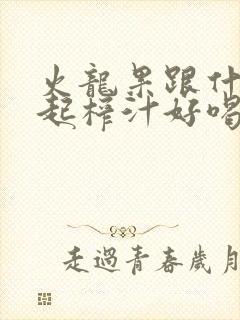 火龍果跟什
起榨汁好喝
走過青春歲月